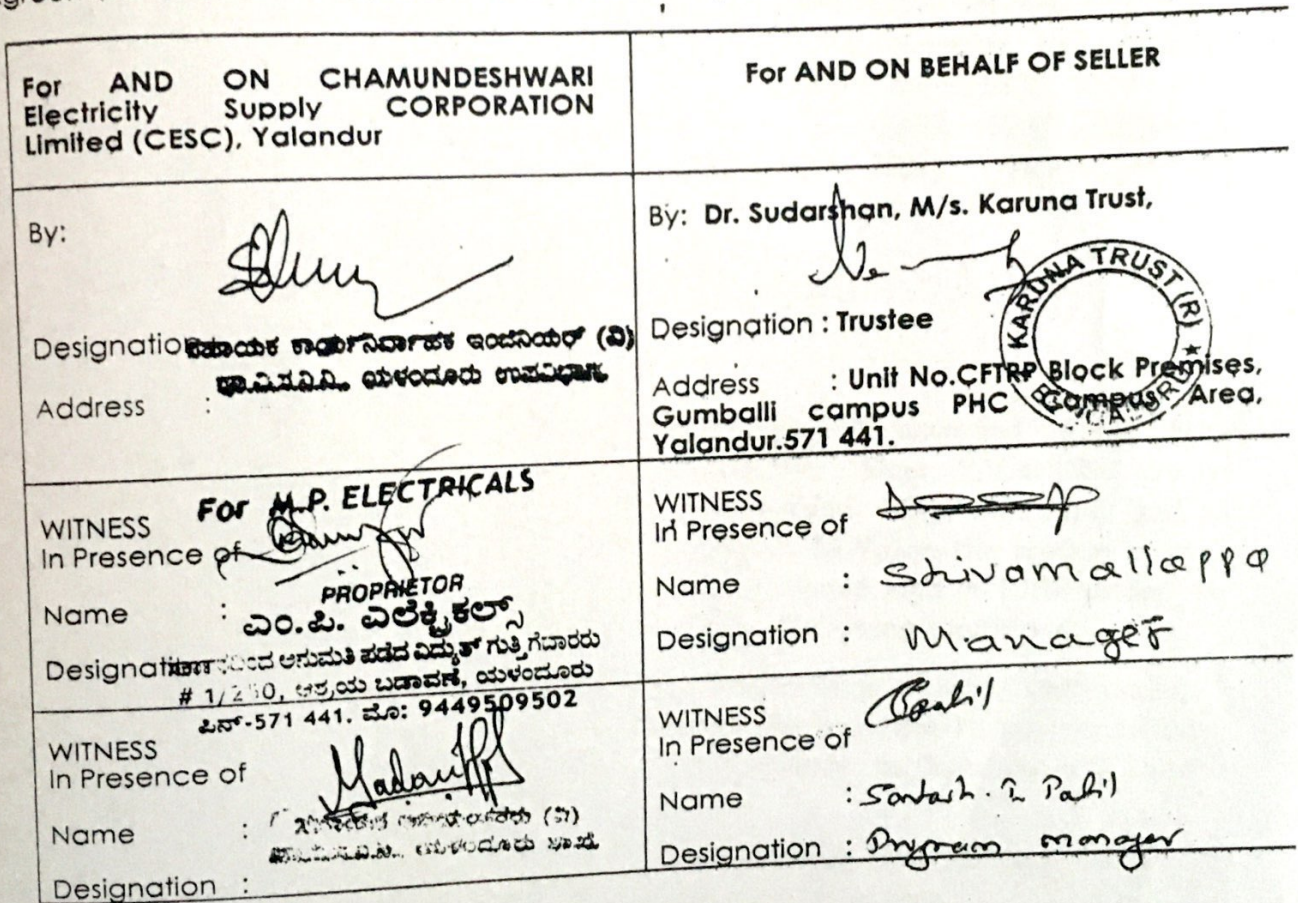 For AND ON CHAMUNDESHWARI
Electricity Supply CORPORATION
Limited (CESC), Yalandur
For AND ON BEHALF OF SELLER
By:
Designation
ಸಹಾಯಕ ಕಾರ್ಯನಿರ್ವಾಹಕ ಇಂಜಿನಿಯರ್ (ವಿ)
ಚಾ.ವಿ.ಸ.ನಿ.ನಿ., ಯಳಂದೂರು ಉಪವಿಭಾಗ
Address :
By: Dr. Sudarshan, M/s. Karuna Trust,
KARUNA TRUST (R)
Designation : Trustee
Address : Unit No.CFTRP Block Premises,
Gumballi campus PHC Campus Area,
Yalandur.571 441.
For M.P. ELECTRICALS
WITNESS
In Presence of
PROPRIETOR
Name :
ಎಂ.ಪಿ. ಎಲೆಕ್ಟ್ರಿಕಲ್ಸ್
Designation
ಅನುಮತಿ ಪಡೆದ ವಿದ್ಯುತ್ ಗುತ್ತಿಗೆದಾರರು
# 1/250, ಆಶ್ರಯ ಬಡಾವಣೆ, ಯಳಂದೂರು
ಪಿನ್-571 441. ಮೊ: 9449509502
WITNESS
In Presence of
Name : Shivamallappa
Designation : Manager
WITNESS
In Presence of
Name :
(ವಿ)
ಯಳಂದೂರು ಶಾಖೆ
Designation :
WITNESS
In Presence of
Name : Santosh. Patil
Designation : Program manager